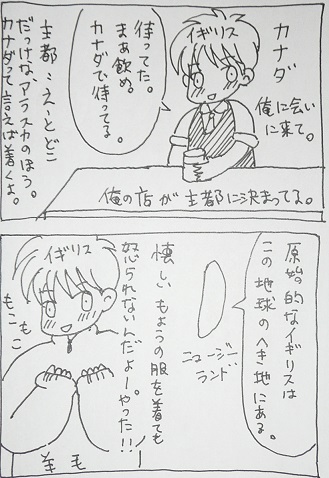 カナダ
俺に会い
に来て。
イギリス
待ってた。
まぁ飲め。
カナダで待ってる。
主都、えーとどこ
だっけな、アラスカのほう。
カナダって言えば着くよ。
俺の店が主都に決まってる。
原始的なイギリスは
この地球のへき地にある。
ニュージー
ランド
懐しいもようの服を着ても
怒られないんだよーやった!!
イギリス
もこもこ
羊毛